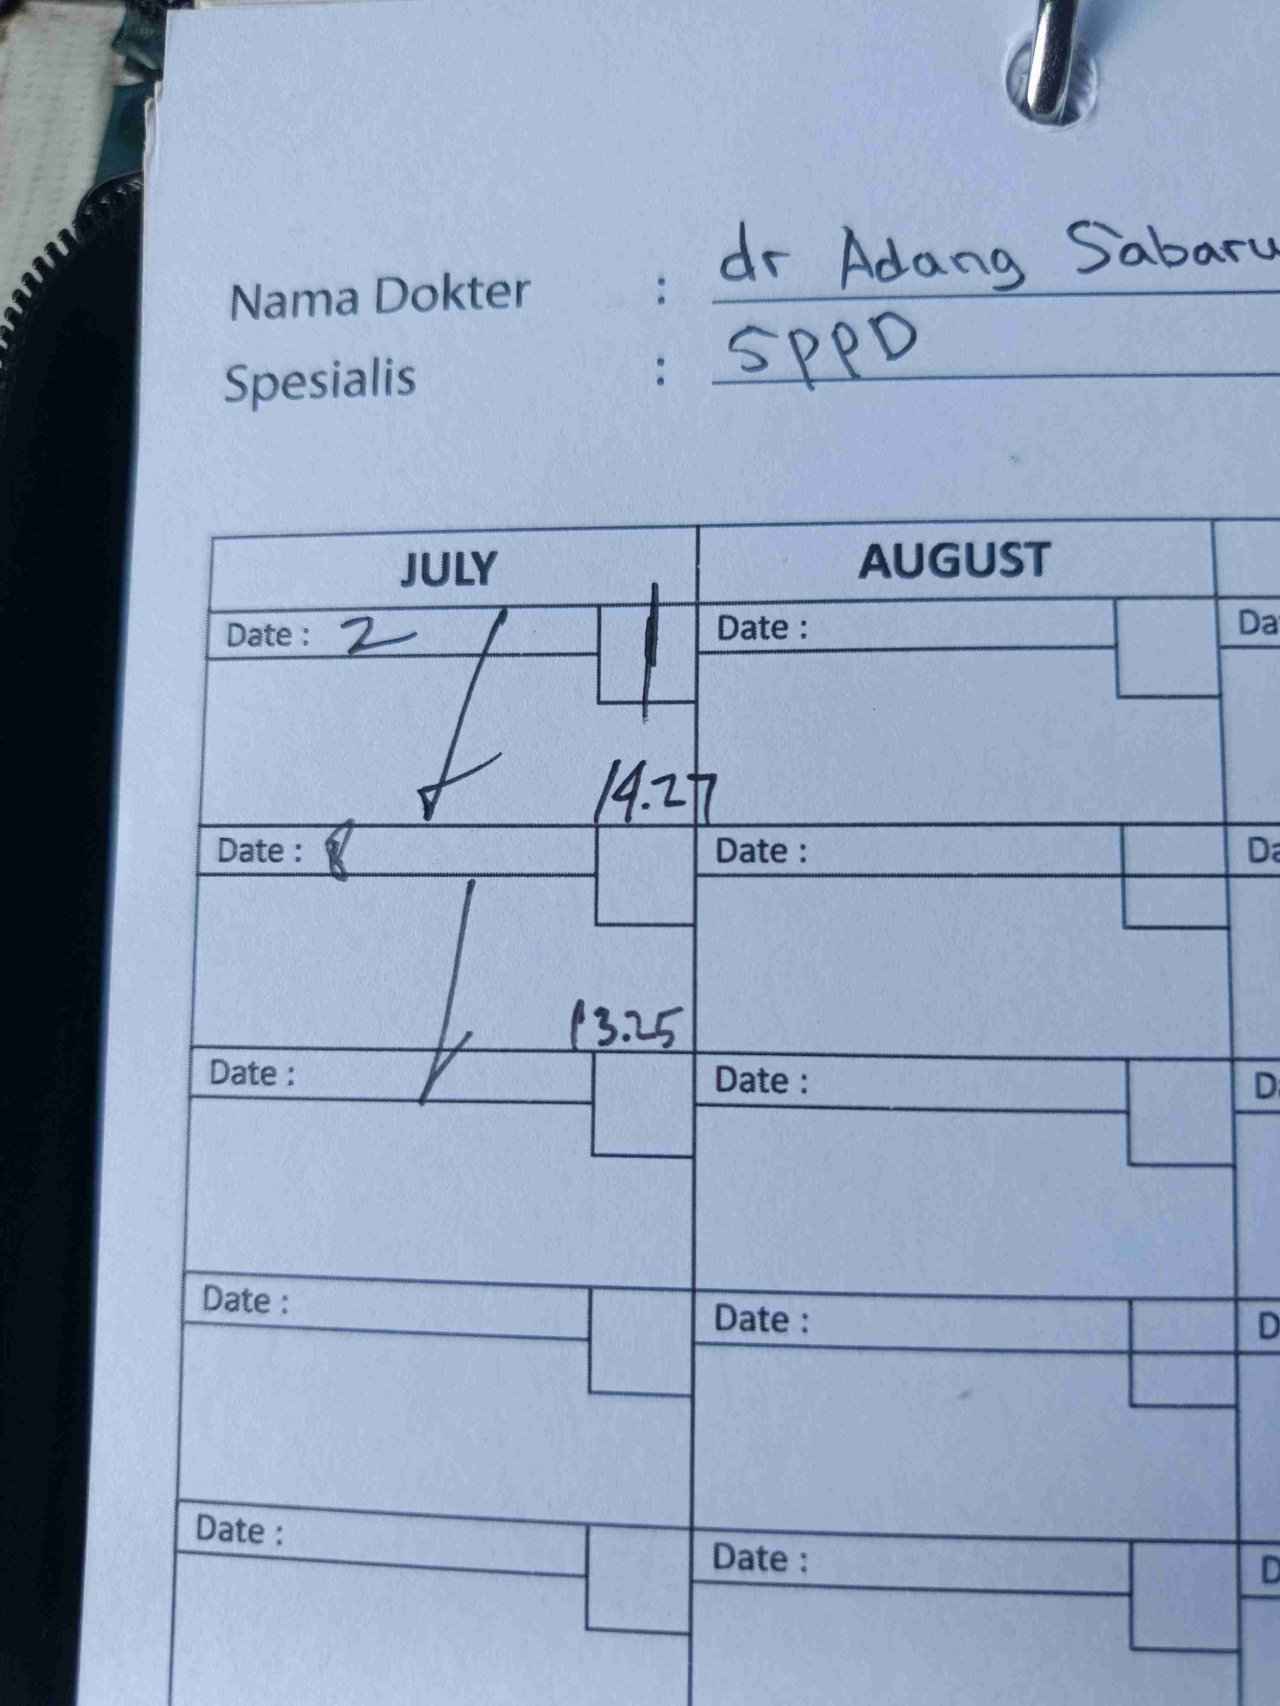 Nama Dokter : dr Adang Sabaru
Spesialis : SPPD
JULY AUGUST
Date : 2 Date : Da
14.27
Date : 8 Date : Da
13.25
Date : Date : Da
Date : Date : D
Date : Date : D